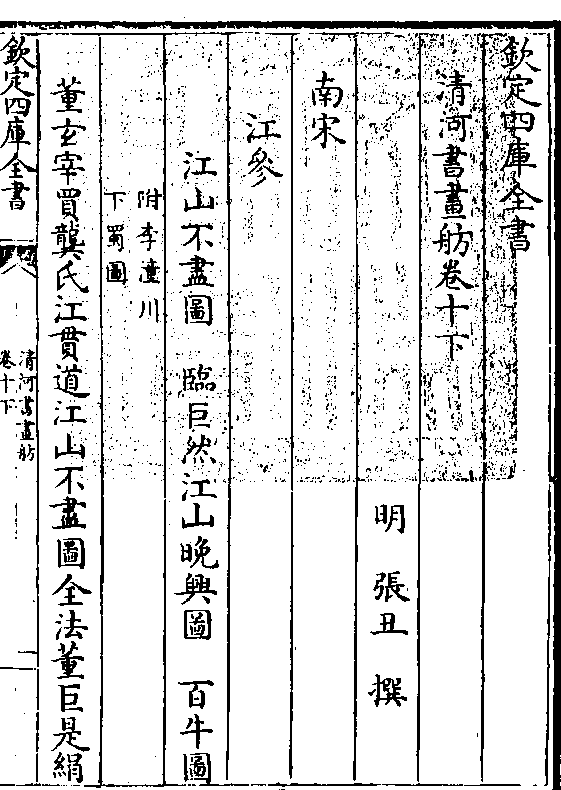 欽定四庫全書
清河書畫舫卷十下
明 張丑 撰
南宋
江參
江山不盡圖 臨巨然江山晚興圖 百牛圖
附李潼川
下蜀圖
董玄宰買龔氏江貫道江山不盡圖全法董巨是絹
欽定四庫全書
清河書畫舫
卷十下
一